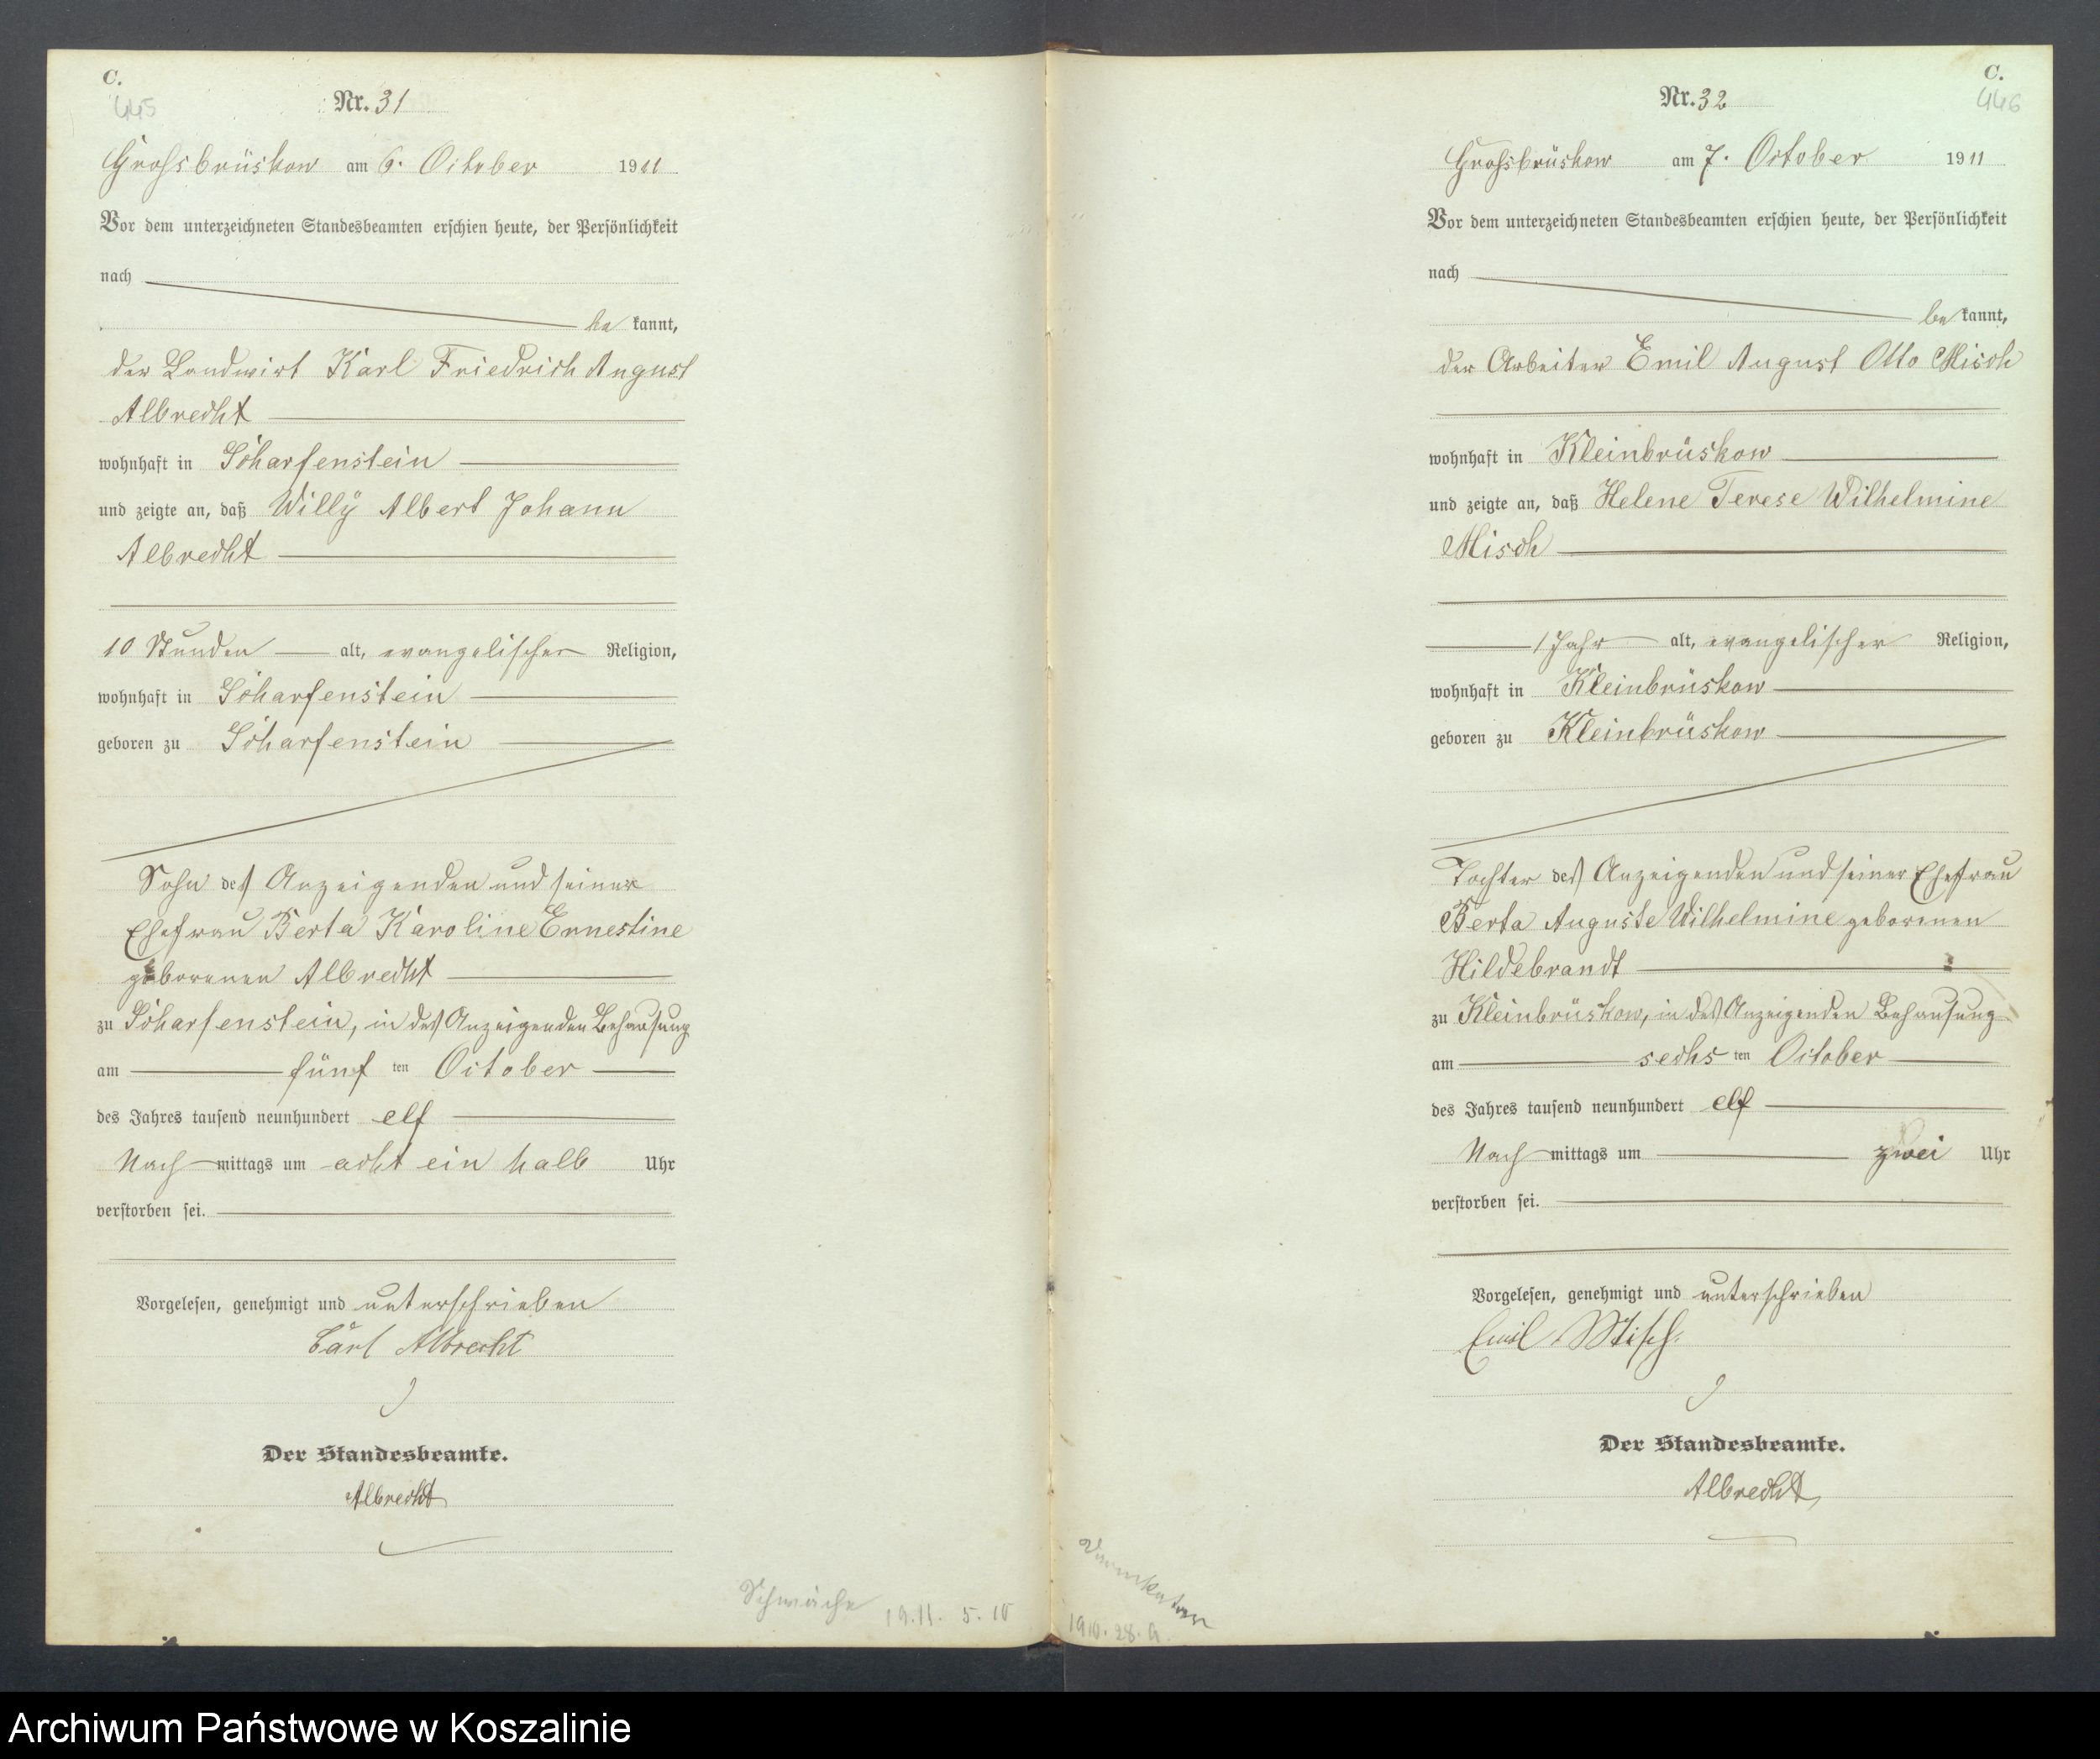 C.
445
Nr. 31
Grossbrüskow am 6. October 1911
Vor dem unterzeichneten Standesbeamten erschien heute, der Persönlichkeit
nach
be kannt,
der Landwirt Karl Friedrich August
Albrecht
wohnhaft in Scharfenstein
und zeigte an, daß Willy Albert Johann
Albrecht
10 Stunden alt, evangelischer Religion,
wohnhaft in Scharfenstein
geboren zu Scharfenstein
Sohn des Anzeigenden und seiner
Ehefrau Berta Karoline Ernestine
geborenen Albrecht
zu Scharfenstein, in des Anzeigenden Behausung
am fünf ten October
des Jahres tausend neunhundert elf
Nach mittags um acht ein halb Uhr
verstorben sei.
Vorgelesen, genehmigt und unterschrieben
Carl Albrecht
Der Standesbeamte.
Albrecht
Schwäche 1911. 5. 10
C.
446
Nr. 32
Grossbrüskow am 7. October 1911
Vor dem unterzeichneten Standesbeamten erschien heute, der Persönlichkeit
nach
be kannt,
der Arbeiter Emil August Otto Misch
wohnhaft in Kleinbrüskow
und zeigte an, daß Helene Terese Wilhelmine
Misch
1 Jahr alt, evangelischer Religion,
wohnhaft in Kleinbrüskow
geboren zu Kleinbrüskow
Tochter des Anzeigenden und seiner Ehefrau
Berta Auguste Wilhelmine geborenen
Hildebrandt
zu Kleinbrüskow, in des Anzeigenden Behausung
am sechs ten October
des Jahres tausend neunhundert elf
Nach mittags um zwei Uhr
verstorben sei.
Vorgelesen, genehmigt und unterschrieben
Emil Misch.
Der Standesbeamte.
Albrecht
1910. 28. 9.
Archiwum Państwowe w Koszalinie